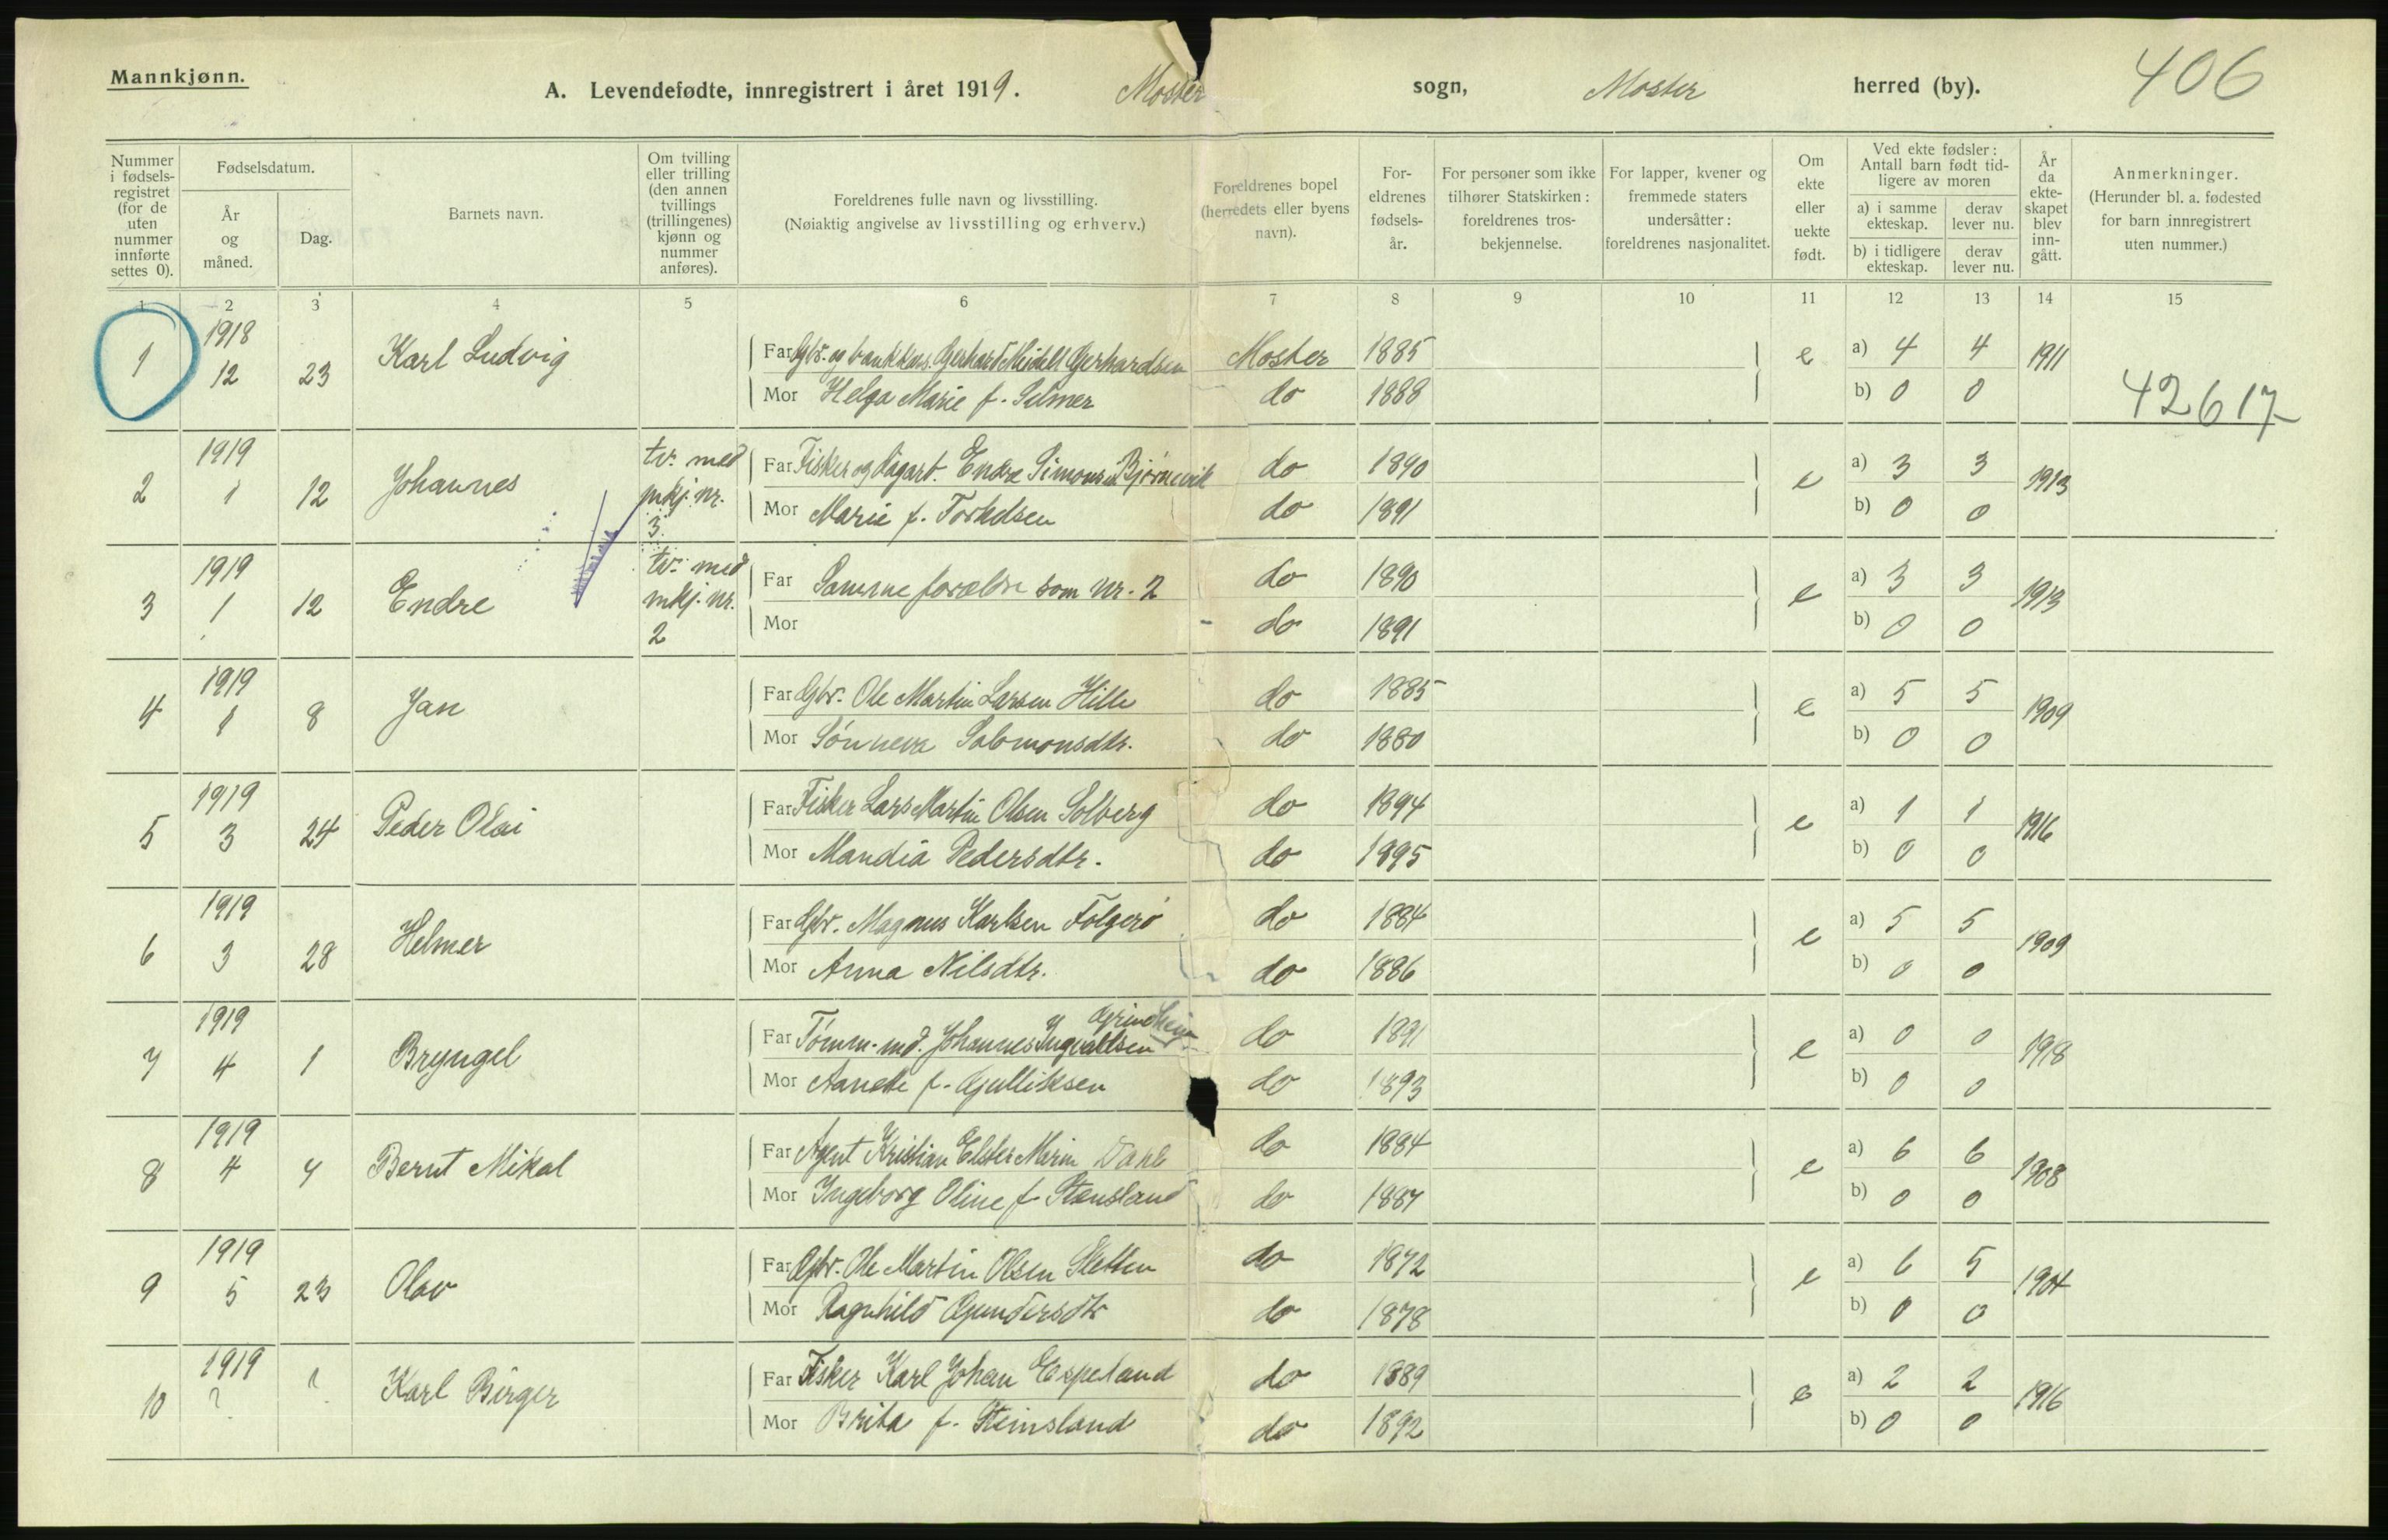 Mannkjønn.
A. Levendefødte, innregistrert i året 1919. Moster sogn, Moster herred (by).
406
Nummer i fødsels-registret (for de uten nummer innførte settes 0).
Fødselsdatum.
År og måned.
Dag.
Barnets navn.
Om tvilling eller trilling (den annen tvillings (trillingenes) kjønn og nummer anføres).
Foreldrenes fulle navn og livsstilling.
(Nøiaktig angivelse av livsstilling og erhverv.)
Foreldrenes bopel (herredets eller byens navn).
For-eldrenes fødsels-år.
For personer som ikke tilhører Statskirken: foreldrenes tros-bekjennelse.
For lapper, kvener og fremmede staters undersåtter: foreldrenes nasjonalitet.
Om ekte eller uekte født.
Ved ekte fødsler: Antall barn født tid-ligere av moren
a) i samme ekteskap.
derav lever nu.
b) i tidligere ekteskap.
derav lever nu.
År da ekte-skapet blev inn-gått.
Anmerkninger.
(Herunder bl. a. fødested for barn innregistrert uten nummer.)
1 2 3 4 5 6 7 8 9 10 11 12 13 14 15
1 1918 12 23 Karl Ludvig Far Gbr. og bankkas. Gerhard Meidell Gerhardsen Moster 1885 e a) 4 4 1911
Mor Helga Marie f. Selmer do 1888 b) 0 0
42617
2 1919 1 12 Johannes tv. med mkj. nr. 3 Far Fisker og dagarb. Endre Simonsen Bjørnevik do 1890 e a) 3 3 1913
Mor Marie f. Torkelsen do 1891 b) 0 0
3 1919 1 12 Endre tv. med mkj. nr. 2 Far Samme forældre som nr. 2 do 1890 e a) 3 3 1913
Mor do 1891 b) 0 0
4 1919 1 8 Jan Far Gbr. Ole Martin Larsen Hille do 1885 e a) 5 5 1909
Mor Sønneva Salomonsdtr. do 1880 b) 0 0
5 1919 3 24 Peder Olai Far Fisker Lars Martin Olsen Solberg do 1894 e a) 1 1 1916
Mor Mandia Pedersdtr. do 1895 b) 0 0
6 1919 3 28 Helmer Far Gbr. Magnus Karlsen Folgerø do 1884 e a) 5 5 1909
Mor Anna Nilsdtr. do 1886 b) 0 0
7 1919 4 1 Bryngel Far Tømm. md. Johannes Ingvaldsen Grindheim do 1891 e a) 0 0 1918
Mor Aanete f. Gulliksen do 1893 b) 0 0
8 1919 4 4 Bernt Mikal Far Agent Kristian Elster Marin Dahl do 1884 e a) 6 6 1908
Mor Ingeborg Oline f. Stensland do 1887 b) 0 0
9 1919 5 23 Olav Far Gbr. Ole Martin Olsen Sletten do 1872 e a) 6 5 1904
Mor Ragnhild Gundersdtr do 1878 b) 0 0
10 1919 ? ? Karl Birger Far Fisker Karl Johan Espeland do 1889 e a) 2 2 1916
Mor Brita f. Steinsland do 1892 b) 0 0